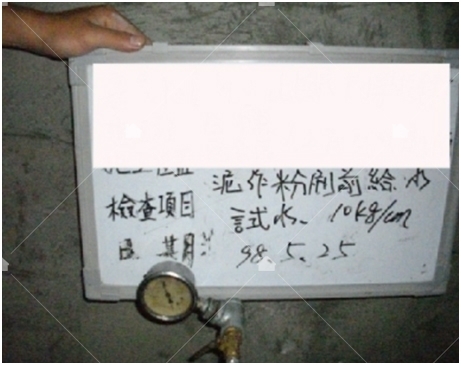 檢查項目 泥作粉刷前給水
試水、10kg/cm
日期: 98.5.25